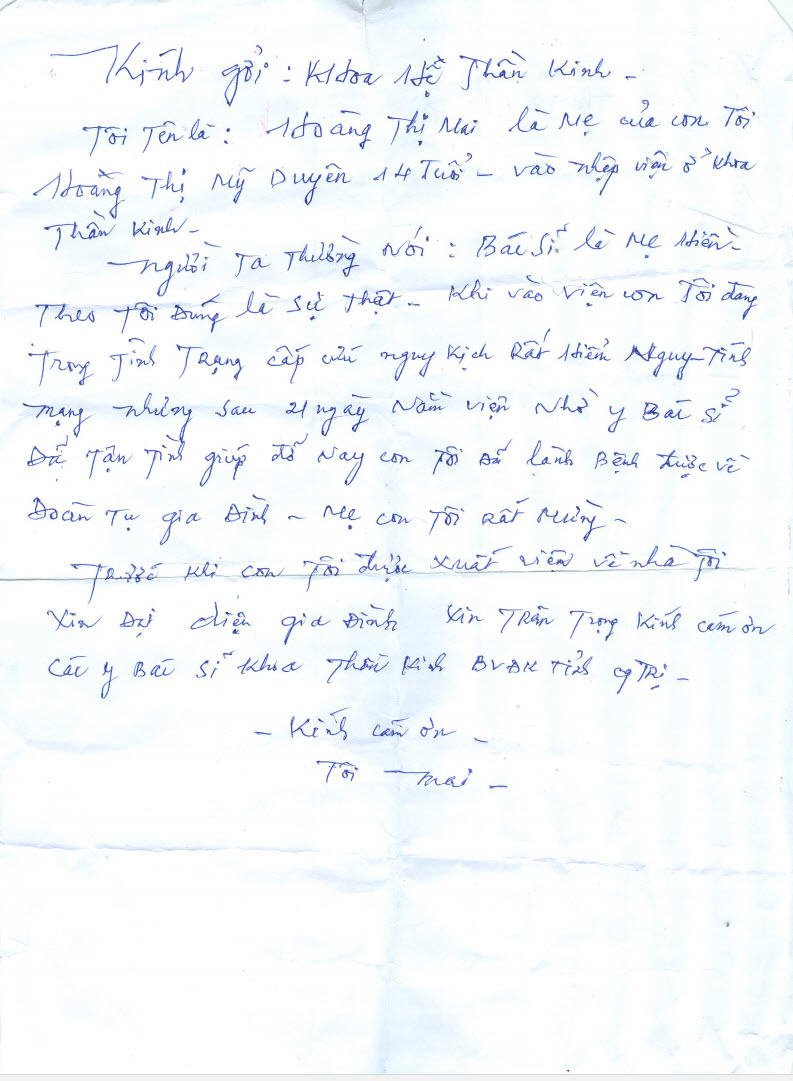 Kính gởi : Khoa Hệ Thần Kinh -
Tôi Tên là : Hoàng Thị Mai là Mẹ của con Tôi
Hoằng Thị Mỹ Duyên 14 Tuổi - vào nhập viện ở Khoa
Thần Kinh -
Người Ta Thường Nói : Bác Sĩ là Mẹ Hiền -
Theo Tôi Đúng là Sự Thật - Khi vào viện con Tôi đang
Trong Tình Trạng cấp cứu nguy kịch Rất Hiểm Nguy - Tính
mạng nhưng sau 21 ngày Nằm viện Nhờ y Bác Sĩ
Đã Tận Tình giúp đỡ Nay con Tôi Đã lành Bệnh được về
Đoàn Tụ gia Đình - Mẹ con Tôi Rất Mừng -
Trước khi con Tôi được xuất viện về nhà Tôi
Xin Đại diện gia Đình Xin Trân Trọng Kính cảm ơn
Các y Bác Sĩ Khoa Thần Kinh BVĐK Tỉnh QTrị -
- Kính cảm ơn -
Tôi Mai -